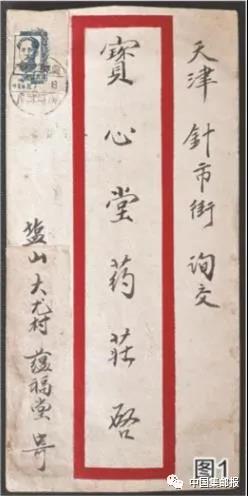 天津 針市街 询交
寶心堂药莊啓
盐山大尤村 蕴福堂 寄
图1
中国集邮报